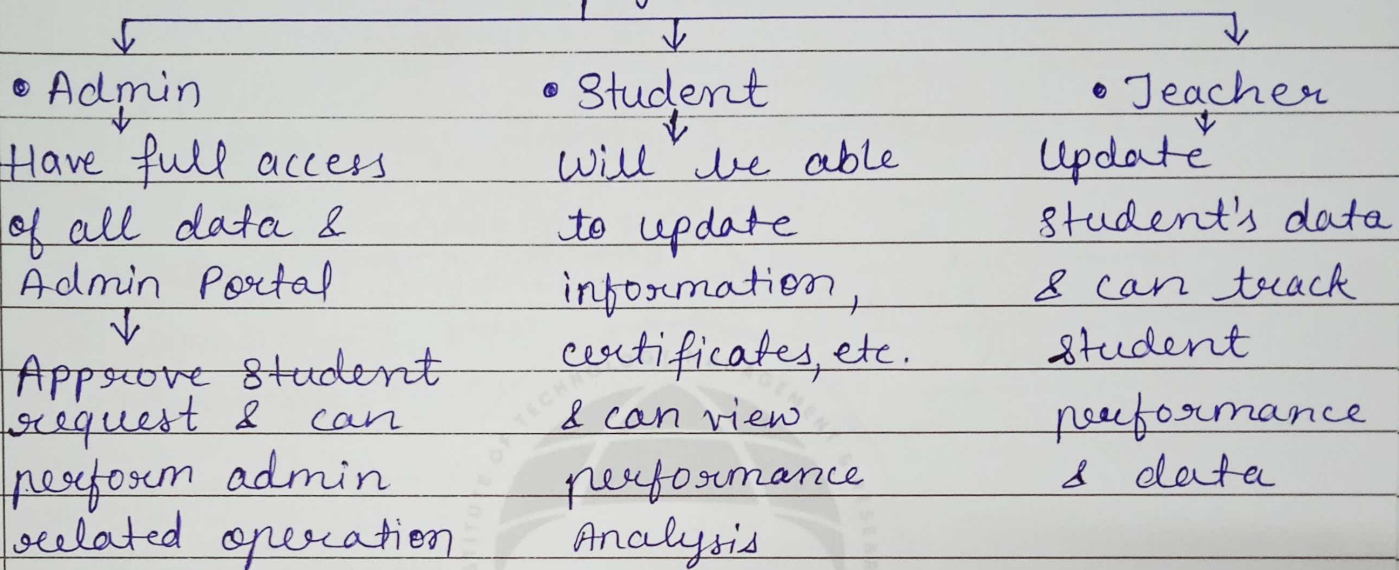 • Admin
Have full access
of all data &
Admin Portal
Approve student
request & can
perform admin
related operation
• Student
Will be able
to update
information,
certificates, etc.
& can view
performance
Analysis
• Teacher
Update
student's data
& can track
student
performance
& data